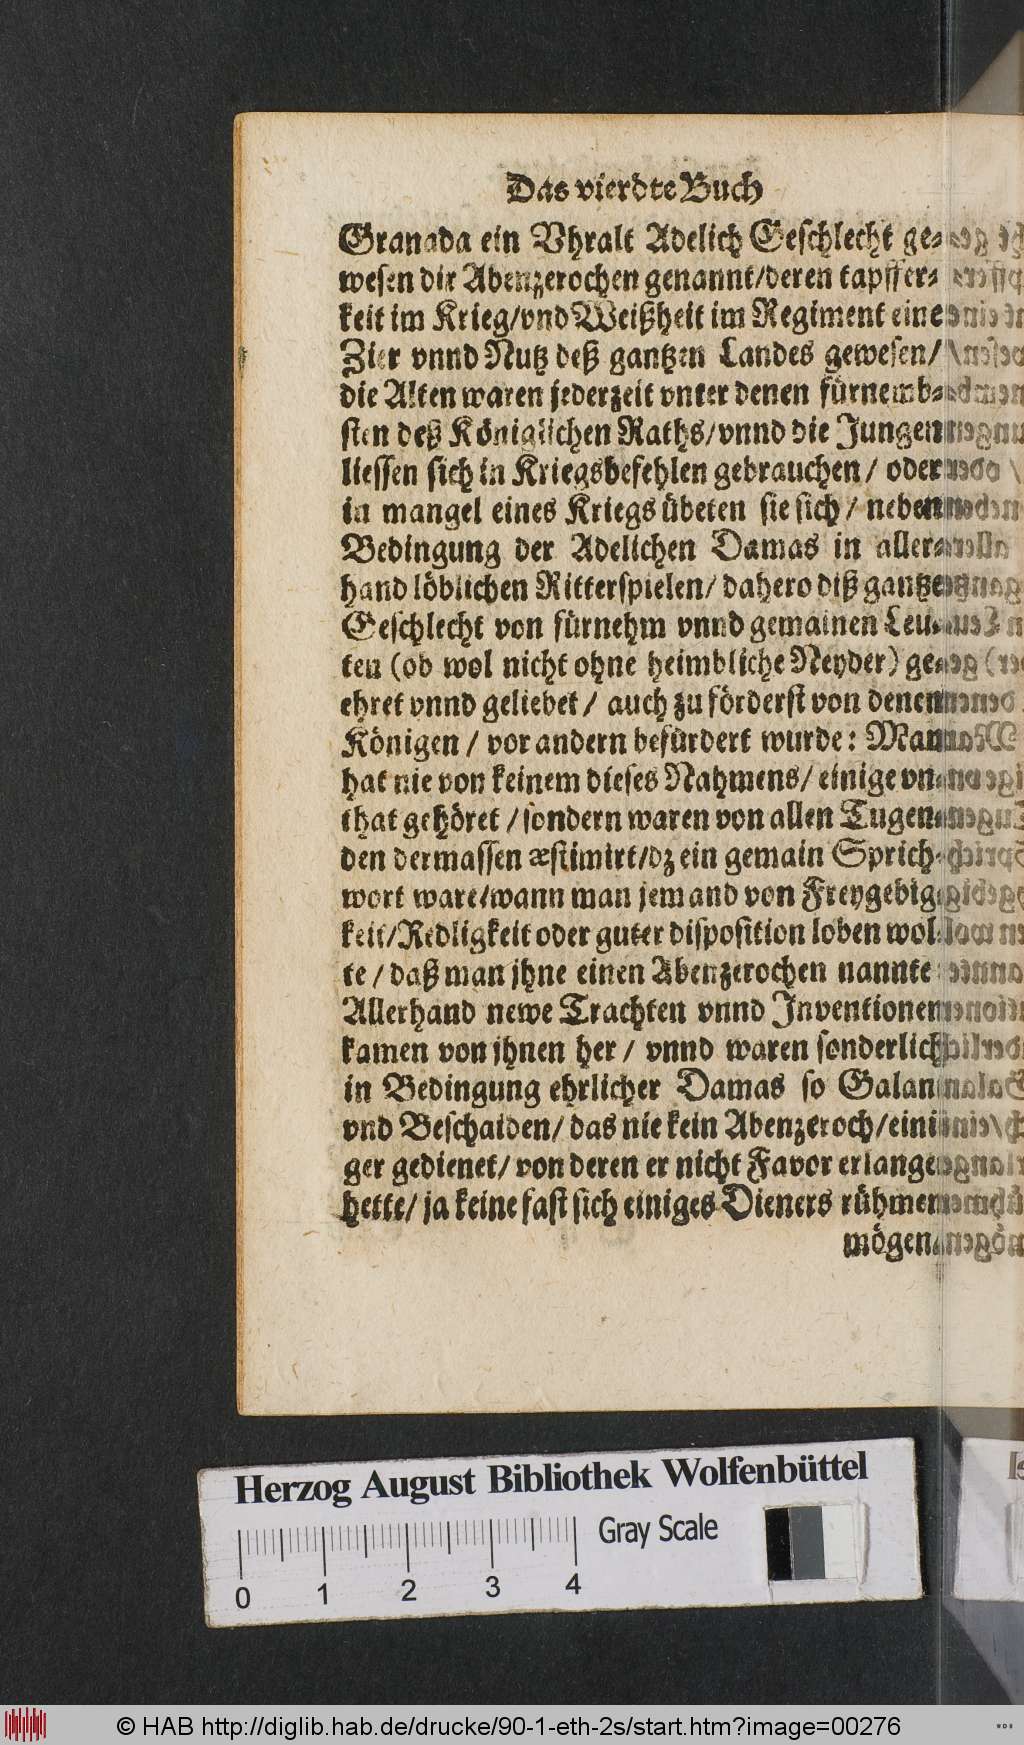 Das vierdte Buch
Granada ein Vhralt Adelich Geschlecht ge⸗
wesen die Abenzerochen genannt/deren tapffer⸗
keit im Krieg/vnd Weißheit im Regiment eine
Zier vnnd Nutz deß gantzen Landes gewesen/
die Alten waren jederzeit vnter denen fürnemb⸗
sten deß Königlichen Raths/vnnd die Jungen
liessen sich in Kriegsbefehlen gebrauchen/ oder
in mangel eines Kriegs übeten sie sich/ neben
Bedingung der Adelichen Damas in aller⸗
hand löblichen Ritterspielen/ dahero diß gantze
Geschlecht von fürnehm vnnd gemainen Leu⸗
ten (ob wol nicht ohne heimbliche Neyder) ge⸗
ehret vnnd geliebet/ auch zu förderst von denen
Königen/ vor andern befürdert wurde: Man
hat nie von keinem dieses Nahmens/ einige vn⸗
that gehöret/sondern waren von allen Tugen⸗
den dermassen æstimirt/dz ein gemain Sprich⸗
wort ware/wann man jemand von Freygebig⸗
keit/Redligkeit oder guter disposition loben wol⸗
te/ daß man jhne einen Abenzerochen nannte
Allerhand newe Trachten vnnd Inventionen
kamen von jhnen her/ vnnd waren sonderlich
in Bedingung ehrlicher Damas so Galan
vnd Beschaiden/ das nie kein Abenzeroch/eini⸗
ger gedienet/ von deren er nicht Favor erlanget
hette/ ja keine fast sich einiges Dieners rühmen
mögen
Herzog August Bibliothek Wolfenbüttel
Gray Scale
0 1 2 3 4
© HAB http://diglib.hab.de/drucke/90-1-eth-2s/start.htm?image=00276